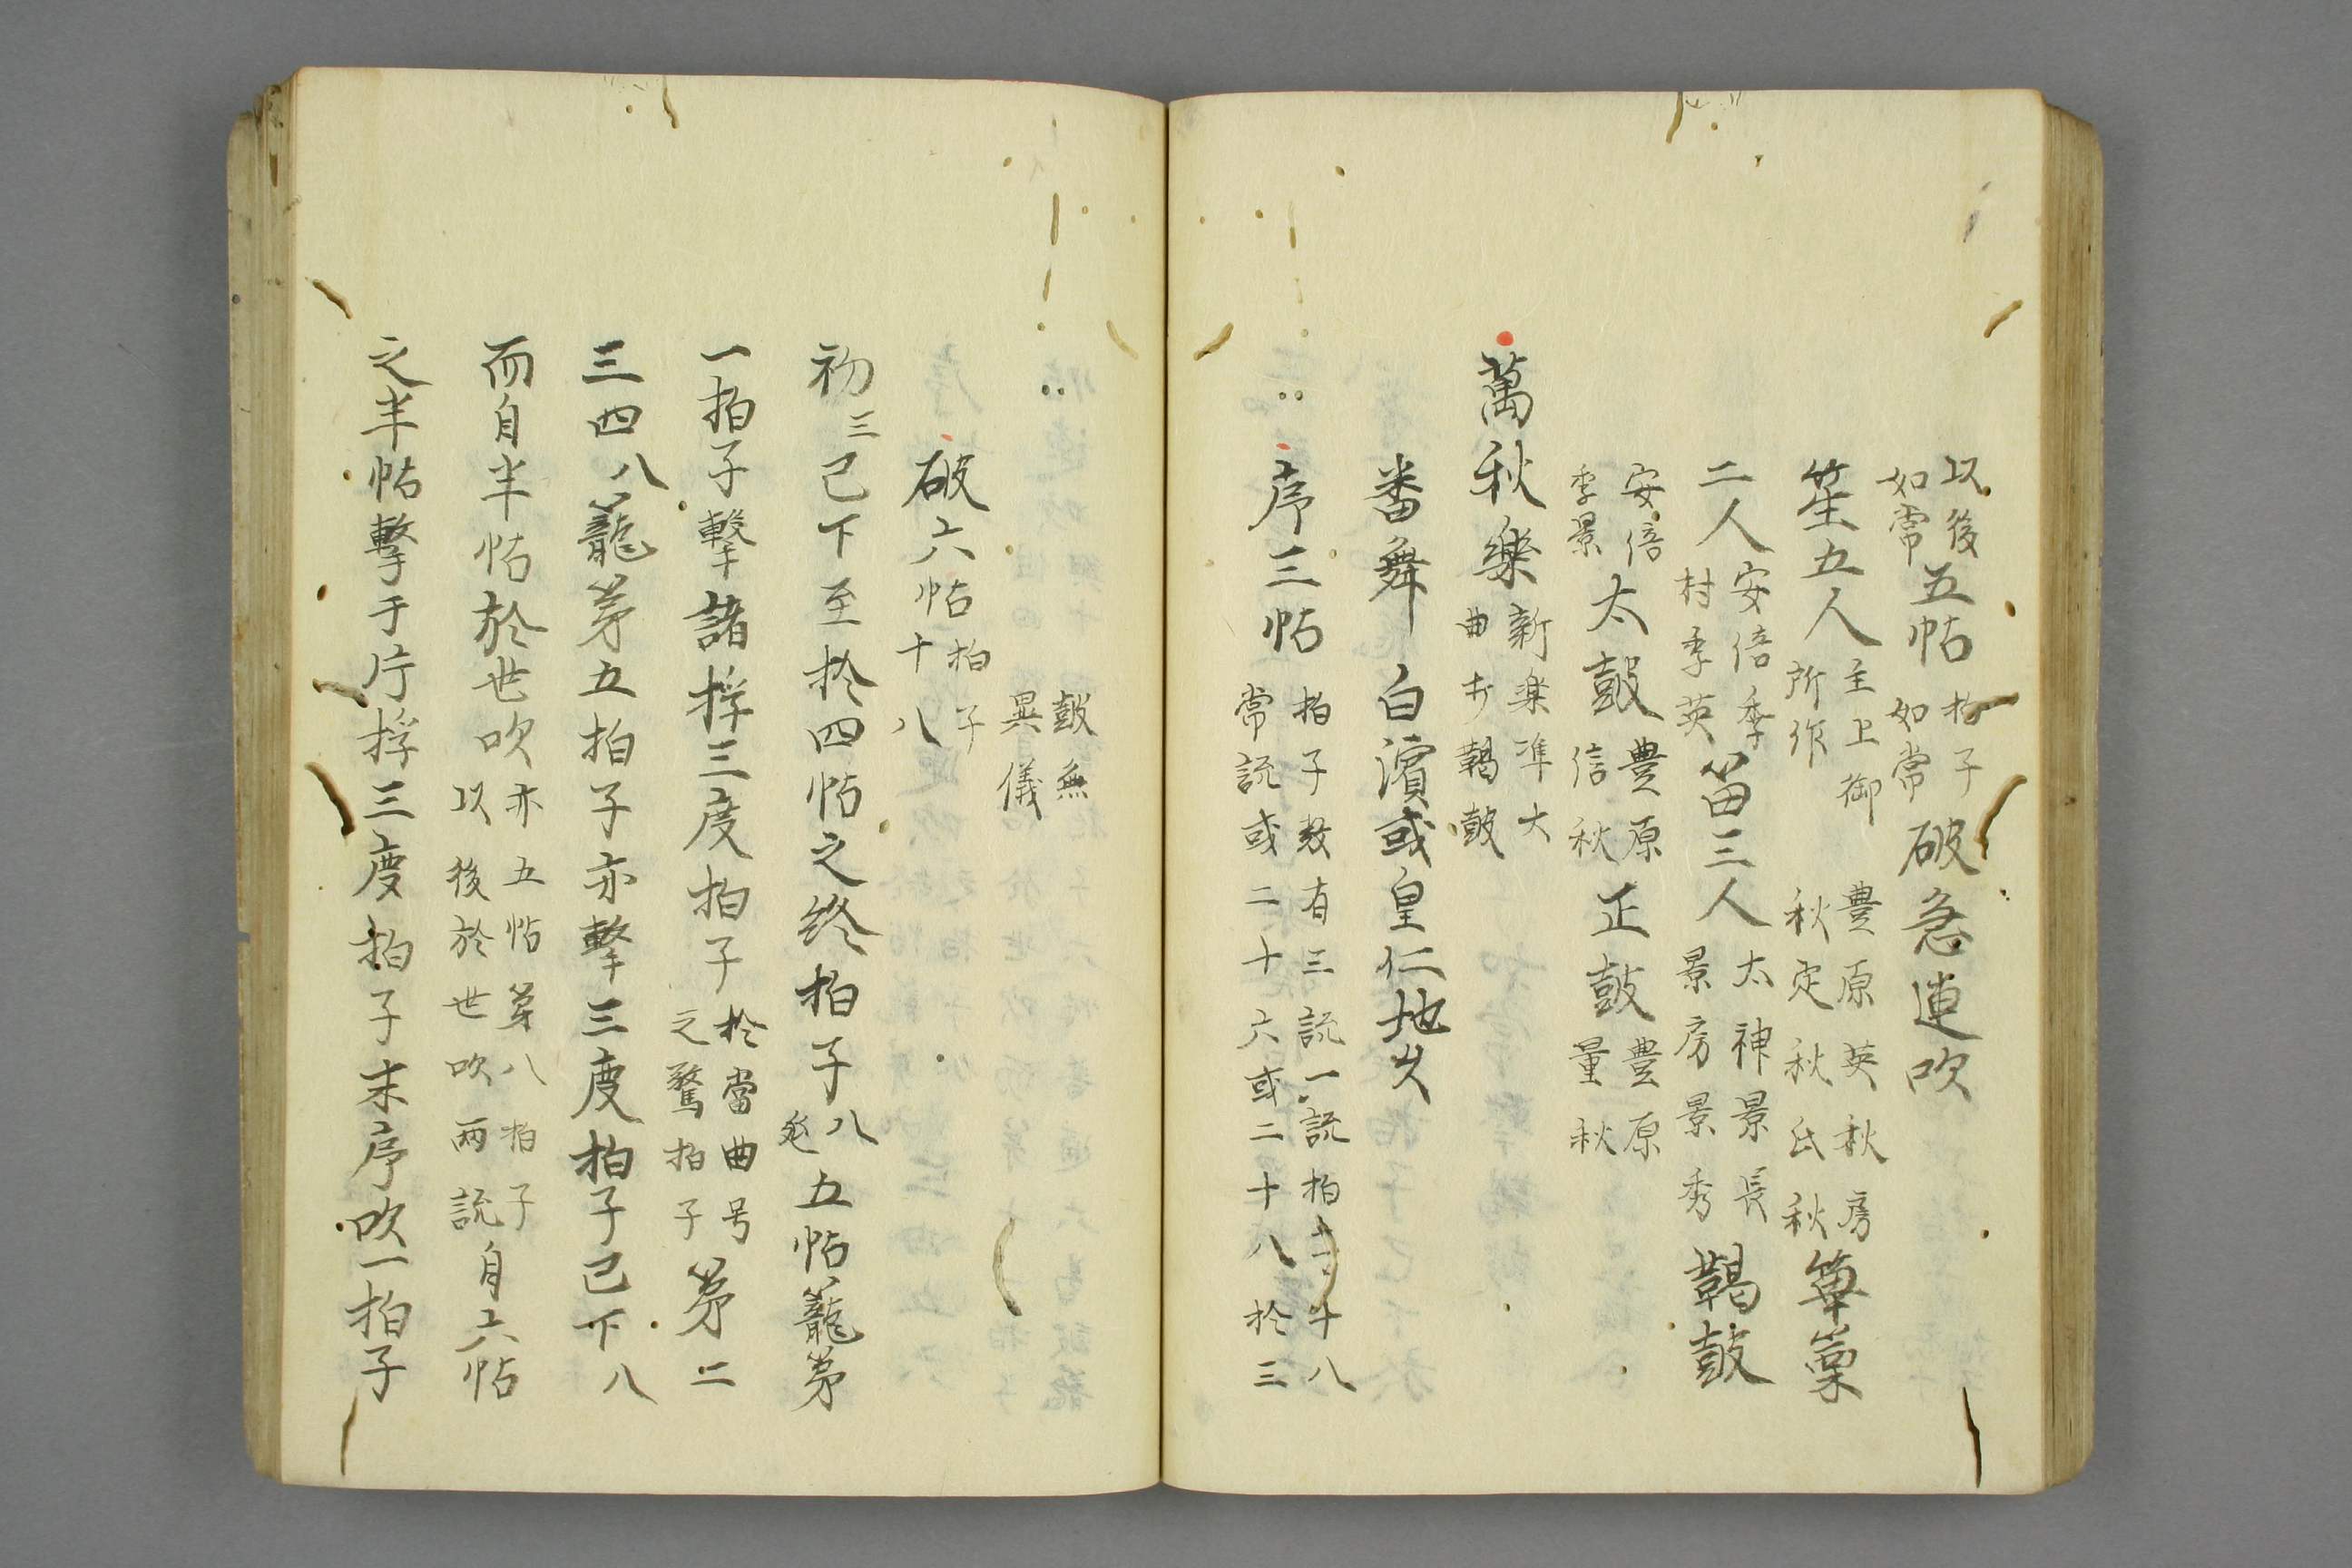 以後如常五帖拍子如常破急連吹
笙五人主上御所作豊原英秋房秋定秋氏秋篳篥
二人安倍季村季英笛三人太神景長景房景秀鞨鼓
安倍季景太鼓豊原信秋正鼓豊原量秋
萬秋樂新楽準大曲弁鞨鼓
番舞白濱或皇仁地久
序三帖拍子数有三説一説拍子十八常説或二十六或二十八於三
鼓無異儀
破六帖拍子十八
初三已下至於四帖之終拍子八五帖籠第
一拍子撃諸桴三度拍子於當曲号之鶩拍子第二
三四八籠第五拍子亦撃三度拍子已下八
而自半帖於世吹亦五帖第八拍子以後於世吹両説自六帖
之半帖撃于片桴三度拍子末序吹一拍子